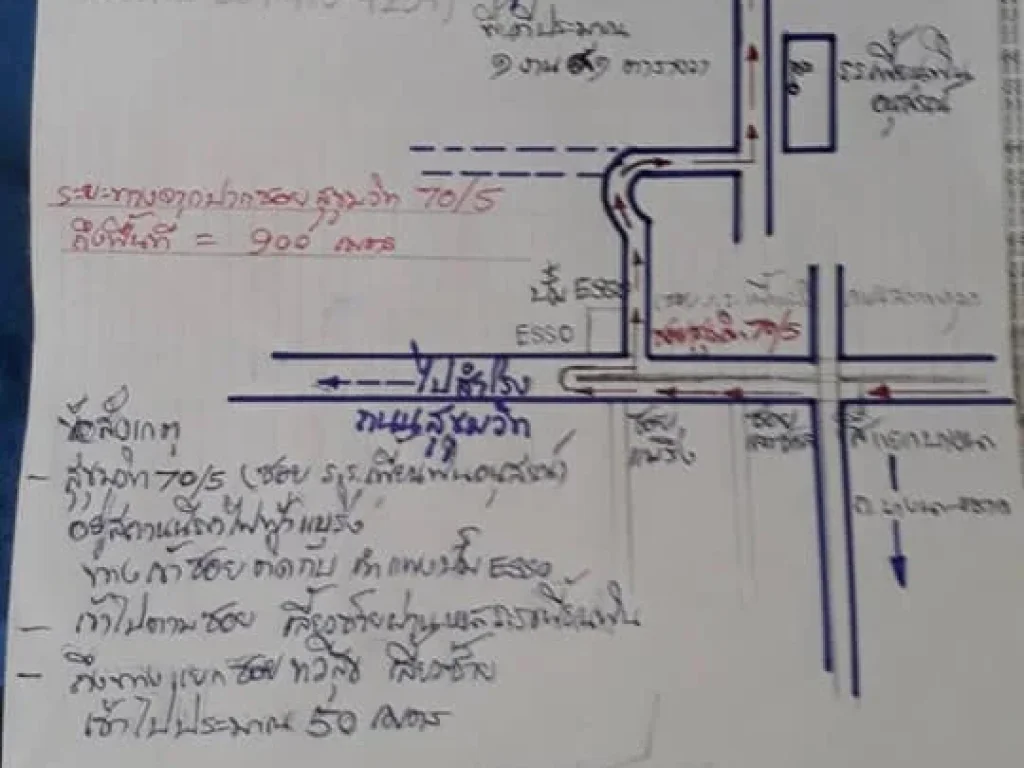 ที่ดินประมาณ
๑ งาน ๙๑ ตารางวา
ร.ร.เพี้ยนพิน
อนุสรณ์
ระยะทางจากปากซอย สุขุมวิท 70/5
ถึงพื้นที่ = 900 เมตร
ปั๊ม ESSO
ESSO
ซอยสุขุมวิท 70/5
ไปสำโรง
ถนนสุขุมวิท
ซอย
แบริ่ง
ซอย
สี่แยกบางนา
ถ.บางนา-ตราด
ข้อสังเกตุ
- สุขุมวิท 70/5 (ซอย ร.ร.เพี้ยนพินอนุสรณ์)
อยู่สถานีรถไฟฟ้า แบริ่ง
ทางเข้าซอย ติดกับ กำแพงปั๊ม ESSO
- เข้าไปตามซอย เลี้ยวซ้ายผ่าน
- ถึงทางแยกซอย ทวีสุข เลี้ยวซ้าย
เข้าไปประมาณ 50 เมตร